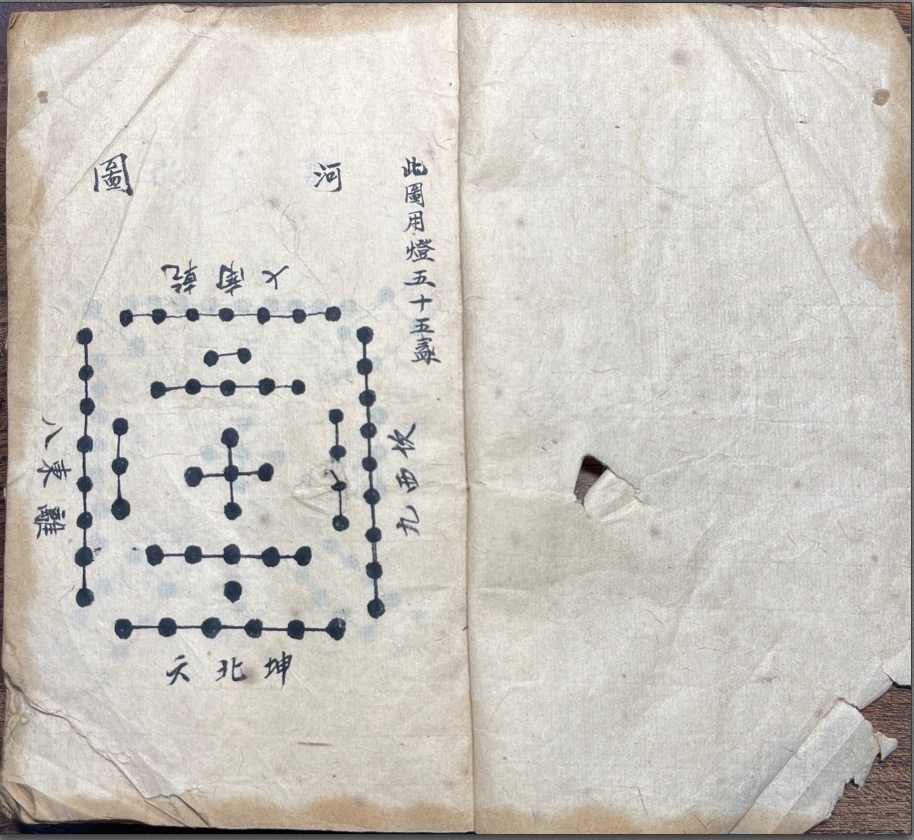 此圖用燈五十五盞
河圖
七南乾
九西坎
八東離
六北坤